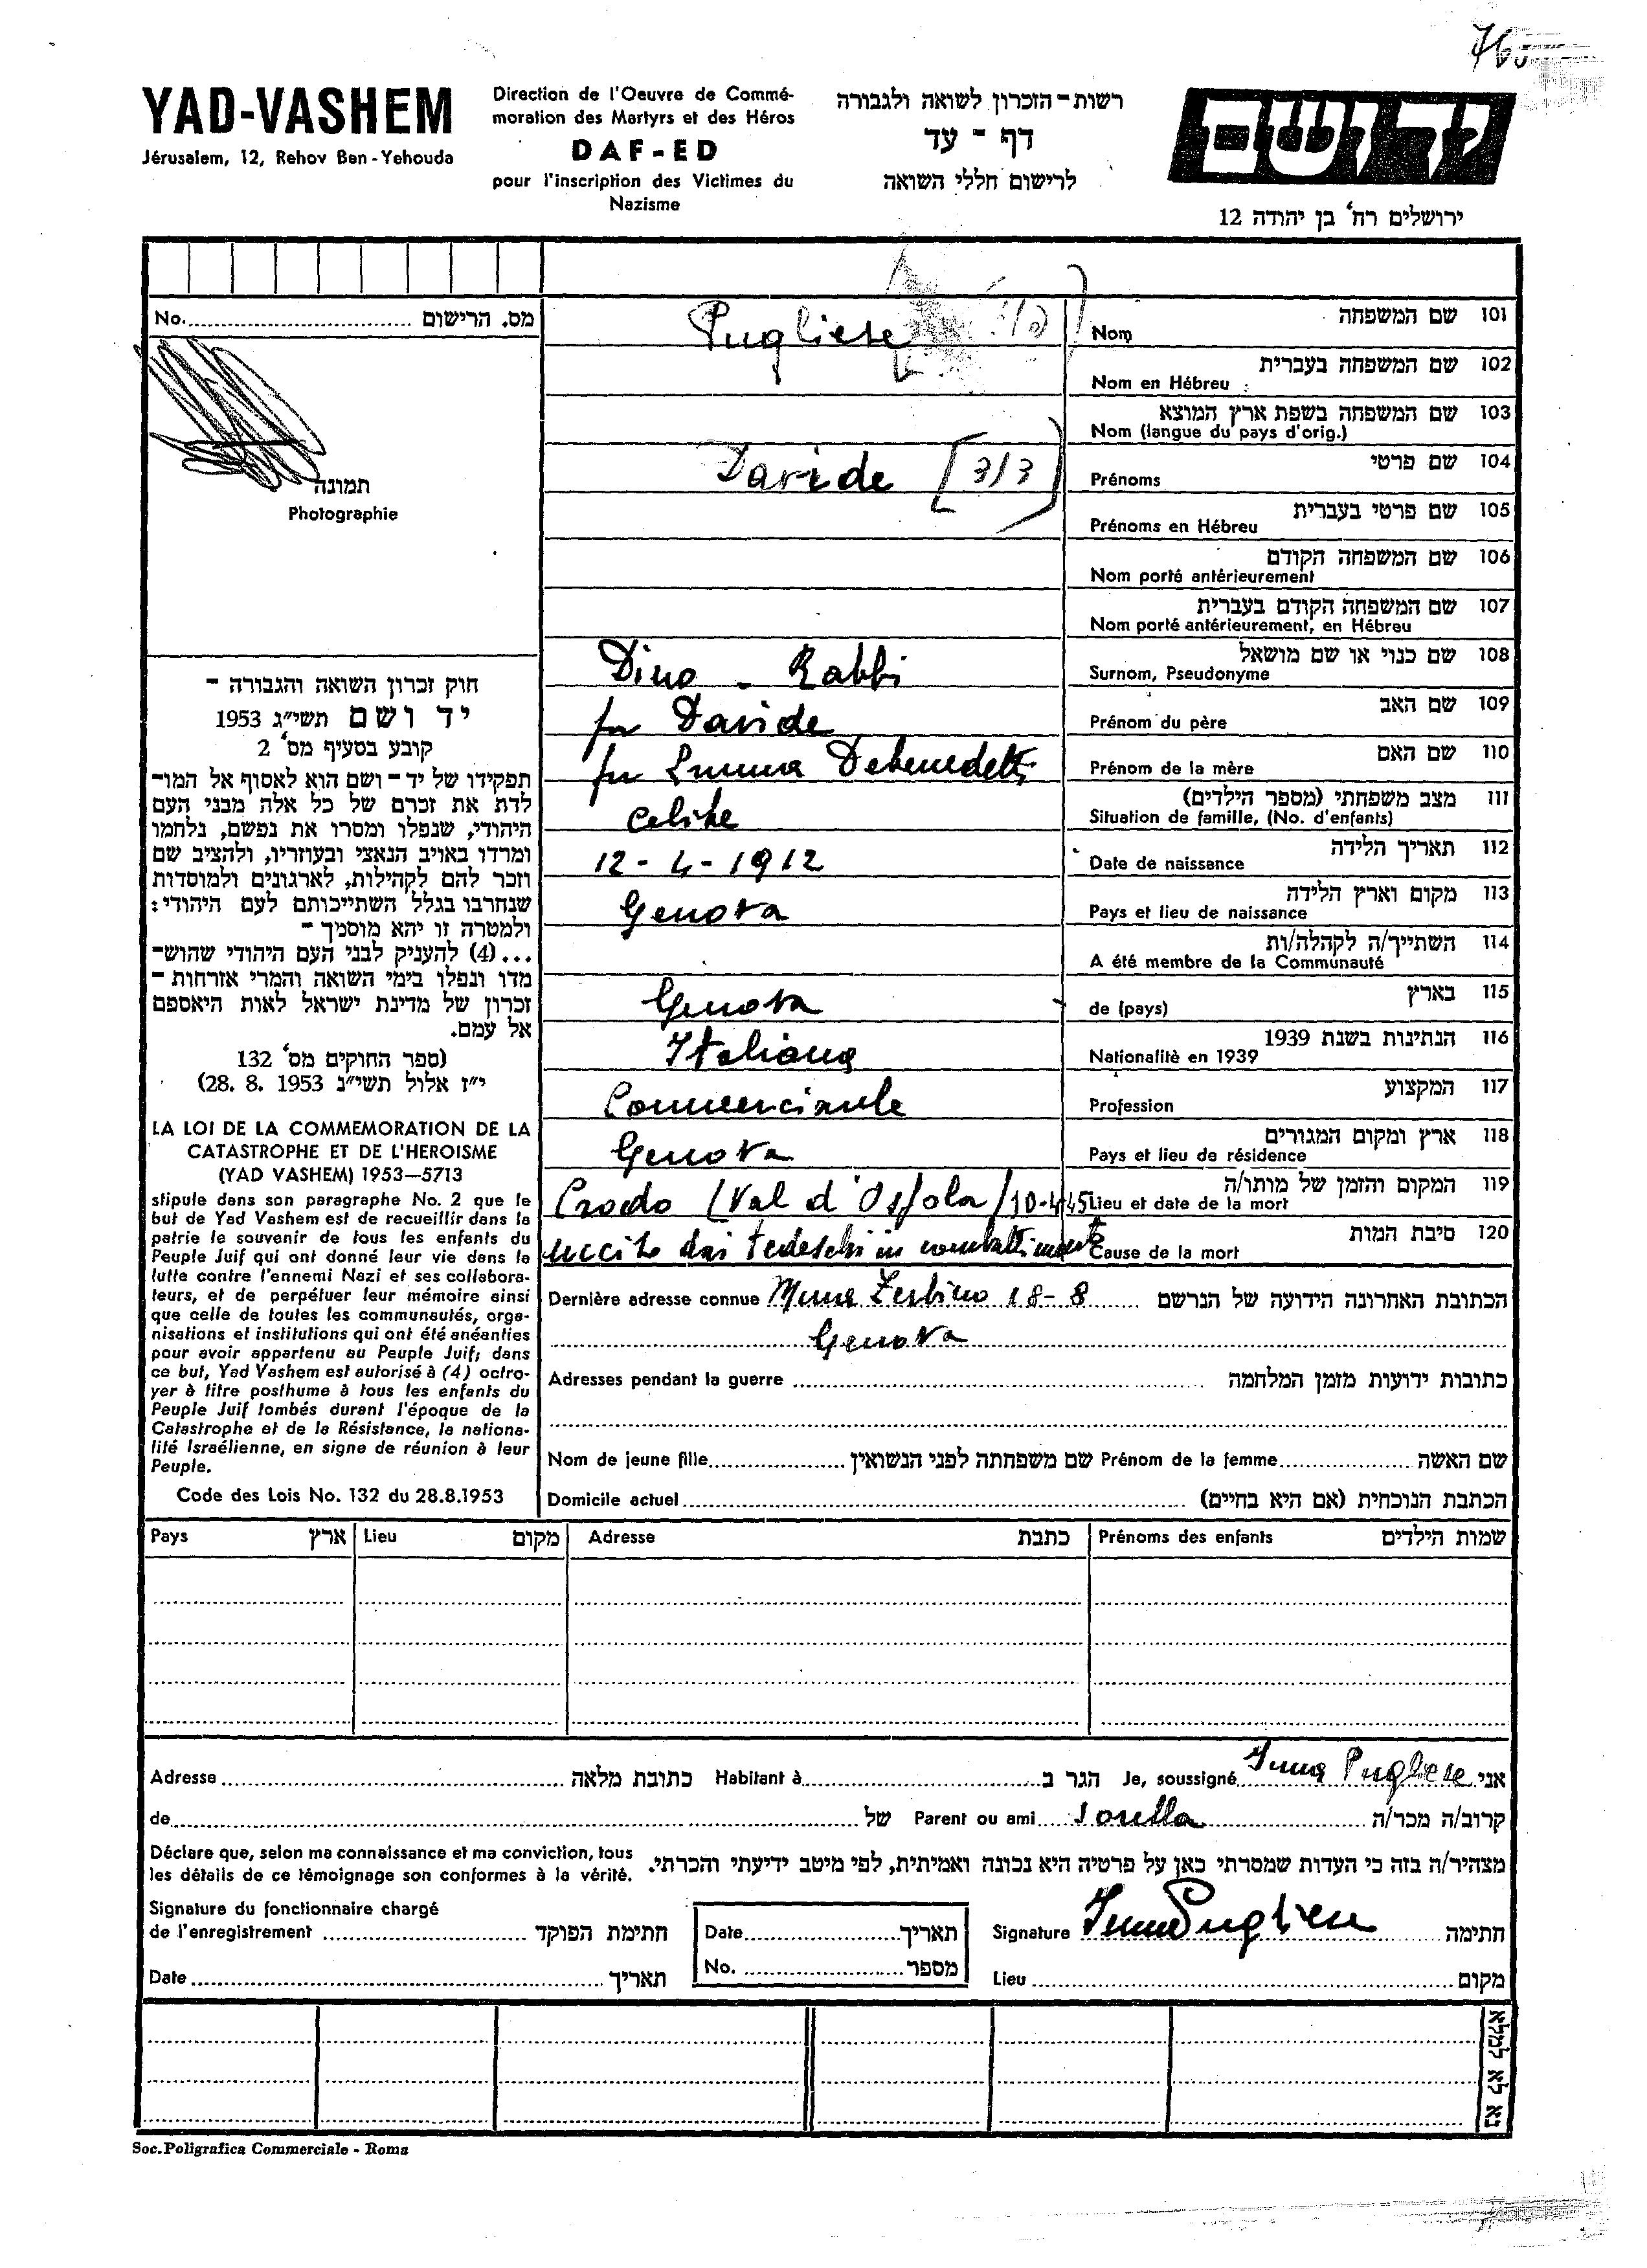 YAD-VASHEM
Jérusalem, 12, Rehov Ben-Yehouda
Direction de l'Oeuvre de Commé-
moration des Martyrs et des Héros
DAF-ED
pour l'inscription des Victimes du
Nazisme
רשות-הזכרון לשואה ולגבורה
דף - עד
לרישום חללי השואה
יד ושם
ירושלים רח' בן יהודה 12
No. מס. הרישום
תמונה
Photographie
חוק זכרון השואה והגבורה -
יד ושם תשי"ג 1953
קובע בסעיף מס' 2
תפקידו של יד-ושם הוא לאסוף אל המו-
לדת את זכרם של כל אלה מבני העם
היהודי, שנפלו ומסרו את נפשם, נלחמו
ומרדו באויב הנאצי ובעוזריו, ולהציב שם
וזכר להם לקהילות, לארגונים ולמוסדות
שנחרבו בגלל השתייכותם לעם היהודי:
ולמטרה זו יהא מוסמך -
...(4) להעניק לבני העם היהודי שהוש-
מדו ונפלו בימי השואה והמרי אזרחות -
זכרון של מדינת ישראל לאות היאספם
אל עמם.
(ספר החוקים מס' 132
י"ז אלול תשי"ג 28. 8. 1953)
LA LOI DE LA COMMEMORATION DE LA
CATASTROPHE ET DE L'HEROISME
(YAD VASHEM) 1953—5713
stipule dans son paragraphe No. 2 que le
but de Yad Vashem est de recueillir dans la
patrie le souvenir de tous les enfants du
Peuple Juif qui ont donné leur vie dans la
lutte contre l'ennemi Nazi et ses collabora-
teurs, et de perpétuer leur mémoire ainsi
que celle de toutes les communautés, orga-
nisations et institutions qui ont été anéanties
pour avoir appartenu au Peuple Juif; dans
ce but, Yad Vashem est autorisé à (4) octro-
yer à titre posthume à tous les enfants du
Peuple Juif tombés durant l'époque de la
Catastrophe et de la Résistance, la nationa-
lité Israélienne, en signe de réunion à leur
Peuple.
Code des Lois No. 132 du 28.8.1953
Pugliese Nom שם המשפחה 101
Nom en Hébreu שם המשפחה בעברית 102
Nom (langue du pays d'orig.) שם המשפחה בשפת ארץ המוצא 103
Davide Prénoms שם פרטי 104
Prénoms en Hébreu שם פרטי בעברית 105
Nom porté antérieurement שם המשפחה הקודם 106
Nom porté antérieurement, en Hébreu שם המשפחה הקודם בעברית 107
Dino - Rabbi Surnom, Pseudonyme שם כנוי או שם מושאל 108
fu Davide Prénom du père שם האב 109
fu Emma Debenedetti Prénom de la mère שם האם 110
celibe Situation de famille, (No. d'enfants) מצב משפחתי (מספר הילדים) 111
12-4-1912 Date de naissance תאריך הלידה 112
Genova Pays et lieu de naissance מקום וארץ הלידה 113
A été membre de la Communauté השתייך/ה לקהלה/ות 114
Genova de (pays) בארץ 115
Italiana Nationalitè en 1939 הנתינות בשנת 1939 116
Commerciante Profession המקצוע 117
Genova Pays et lieu de résidence ארץ ומקום המגורים 118
Crodo (Val d'Ossola) 10-4-45 Lieu et date de la mort המקום והזמן של מותו/ה 119
ucciso dai tedeschi in combattimento Cause de la mort סיבת המות 120
Dernière adresse connue Mura Zerbino 18-8 הכתובת האחרונה הידועה של הנרשם
Genova
Adresses pendant la guerre כתובות ידועות מזמן המלחמה
Nom de jeune fille שם משפחתה לפני הנשואין Prénom de la femme שם האשה
Domicile actuel הכתבת הנוכחית (אם היא בחיים)
Pays ארץ Lieu מקום Adresse כתבת Prénoms des enfants שמות הילדים
Adresse כתובת מלאה Habitant à הגר ב Je, soussigné Pugliese אני
de של Parent ou ami Sorella קרוב/ה מכר/ה
Déclare que, selon ma connaissance et ma conviction, tous
les détails de ce témoignage son conformes à la vérité.
מצהיר/ה בזה כי העדות שמסרתי כאן על פרטיה היא נכונה ואמיתית, לפי מיטב ידיעתי והכרתי.
Signature du fonctionnaire chargé
de l'enregistrement חתימת הפוקד
Date תאריך
Date תאריך
No. מספר
Signature Pugliese חתימה
Lieu מקום
נא לא למלא
Soc.Poligrafica Commerciale - Roma